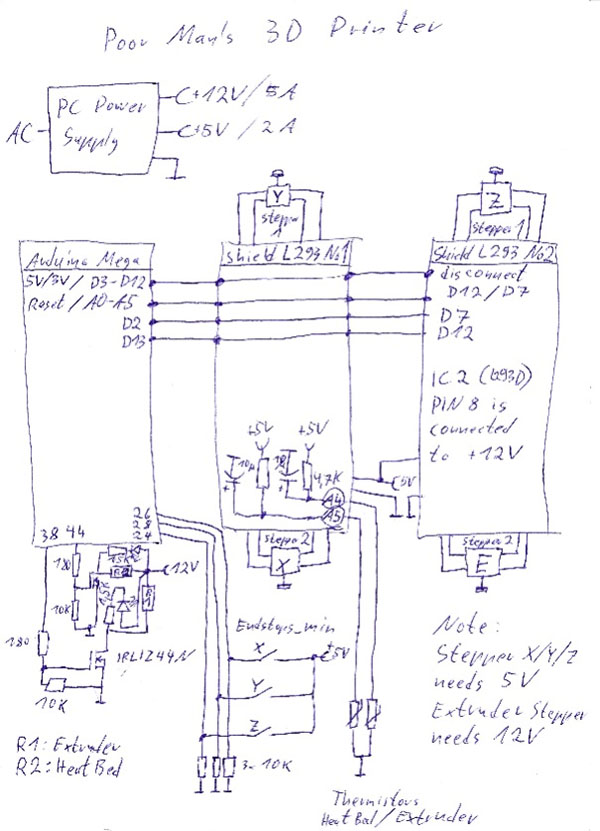 Poor Man's 3D Printer
PC Power
Supply
AC
+12V/5A
+5V/2A
Y
stepper
1
Z
stepper 1
Arduino Mega
5V/3V/D3-D12
Reset/A0-A5
D2
D13
38 44
26
28
24
Shield L293 №1
+5V
+5V
10µ
4,7K
A4
A5
5V
stepper 2
X
Shield L293 №2
disconnect
D12/D7
D7
D12
IC2 (L293D)
PIN 8 is
connected
to +12V
stepper 2
E
180
10K
12V
180
IRLIZ44N
10K
R1: Extruder
R2: Heat Bed
Endstops_min
X
+5V
Y
Z
3x 10K
Thermistors
Heat Bed/Extruder
Note:
Stepper X/Y/Z
needs 5V
Extruder Stepper
needs 12V